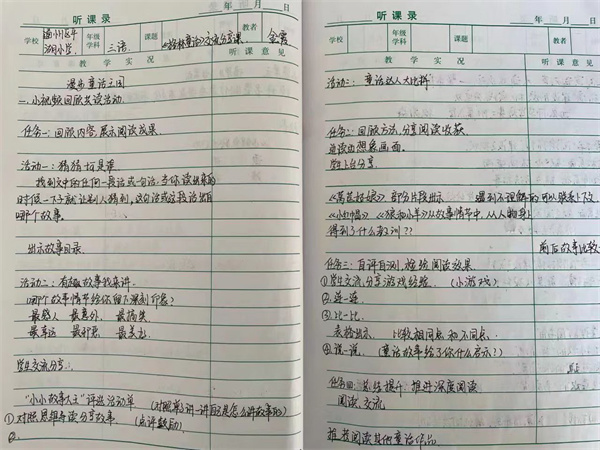 听课录
年 月 日
学校
年级
学科
三语
课题
《格林童话》交流分享课
教者
金霞
教 学 实 况
听 课 意 见
漫步童话王国
一、小视频回顾共读活动.
任务一：回顾内容,展示阅读成果.
活动一：猜猜我是谁
找到文中的任何一段话或一句话,当你读出来的
时候,一下子就让别人猜到,这句话或这段话出自
哪个故事.
出示故事目录.
活动二：有趣故事我来讲.
哪个故事情节给你留下深刻印象?
最感人 最意外 最搞笑
最幸运 最邪恶 最美好
学生交流分享.
"小小故事大王"评选活动单 (对照单)讲一讲自己是怎么讲故事的)
①对照思维导读分享故事. (点评鼓励).
②.
听课录
年 月 日
学校
年级
学科
课题
教者
教 学 实 况
听 课 意 见
活动三：童话达人大比拼
任务二：回顾方法,分享阅读收获.
边读边想象画面.
学生上台分享.
《莴苣姑娘》部分片段出示 遇到不理解的可以联系上下文.
《小红帽》《狼和小羊》从故事情节中,从人物身上
得到了什么教训??
前后故事比较
任务三：自评自测,检验阅读效果.
①学生交流,分享游戏经验. (小游戏).
②连一连.
③比一比.
表格出示. 比较相同点和不同点.
④说一说. (童话故事给了你什么启示?)
任务四：总结提升 推进深度阅读
阅读、交流
推荐阅读其他童话作品.